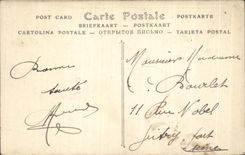 POST CARD Carte Postale POSTKARTE
BRIEFKAART — POSTKAART
CARTOLINA POSTALE — ОТКРЫТОЕ ПИСЬМО — TARJETA POSTAL
Bonne
santé
Monsieur Madame
Bourlet
11 Rue Nobel